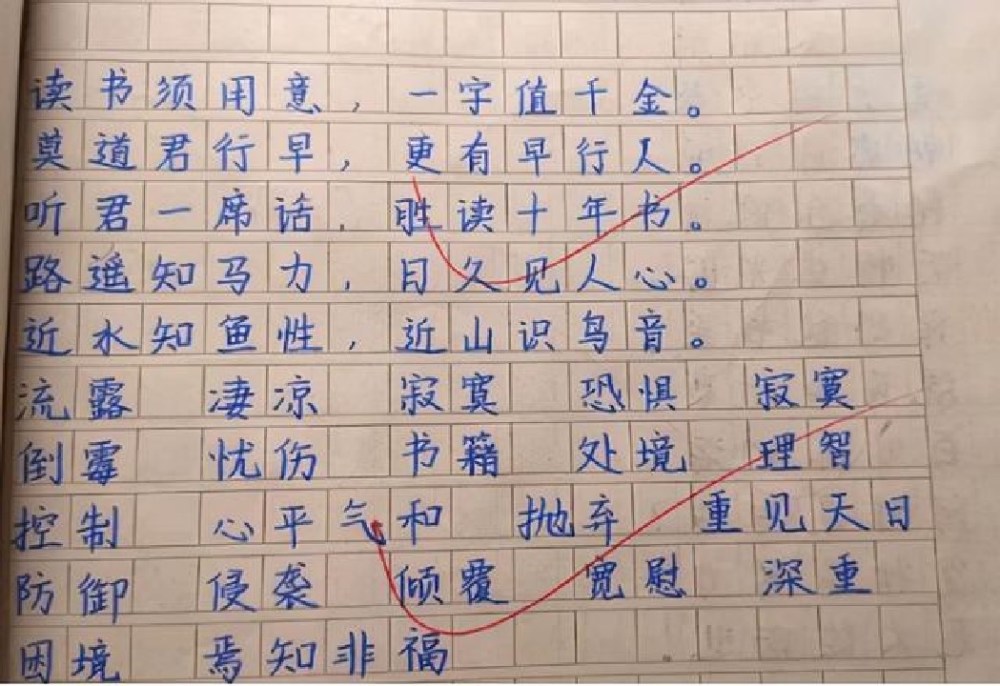 读书须用意，一字值千金。
莫道君行早，更有早行人。
听君一席话，胜读十年书。
路遥知马力，日久见人心。
近水知鱼性，近山识鸟音。
流露 凄凉 寂寞 恐惧 寂寞
倒霉 忧伤 书籍 处境 理智
控制 心平气和 抛弃 重见天日
防御 侵袭 倾覆 宽慰 深重
困境 焉知非福